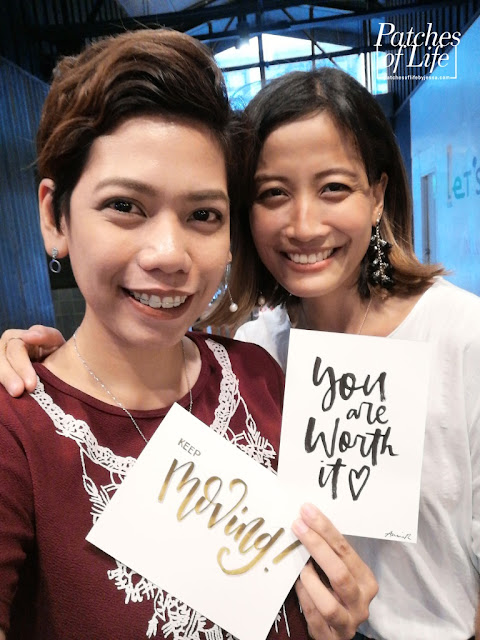 Patches
of Life
patchesoflifebyjessa.com
Let's
KEEP
moving!
you
are
worth
it